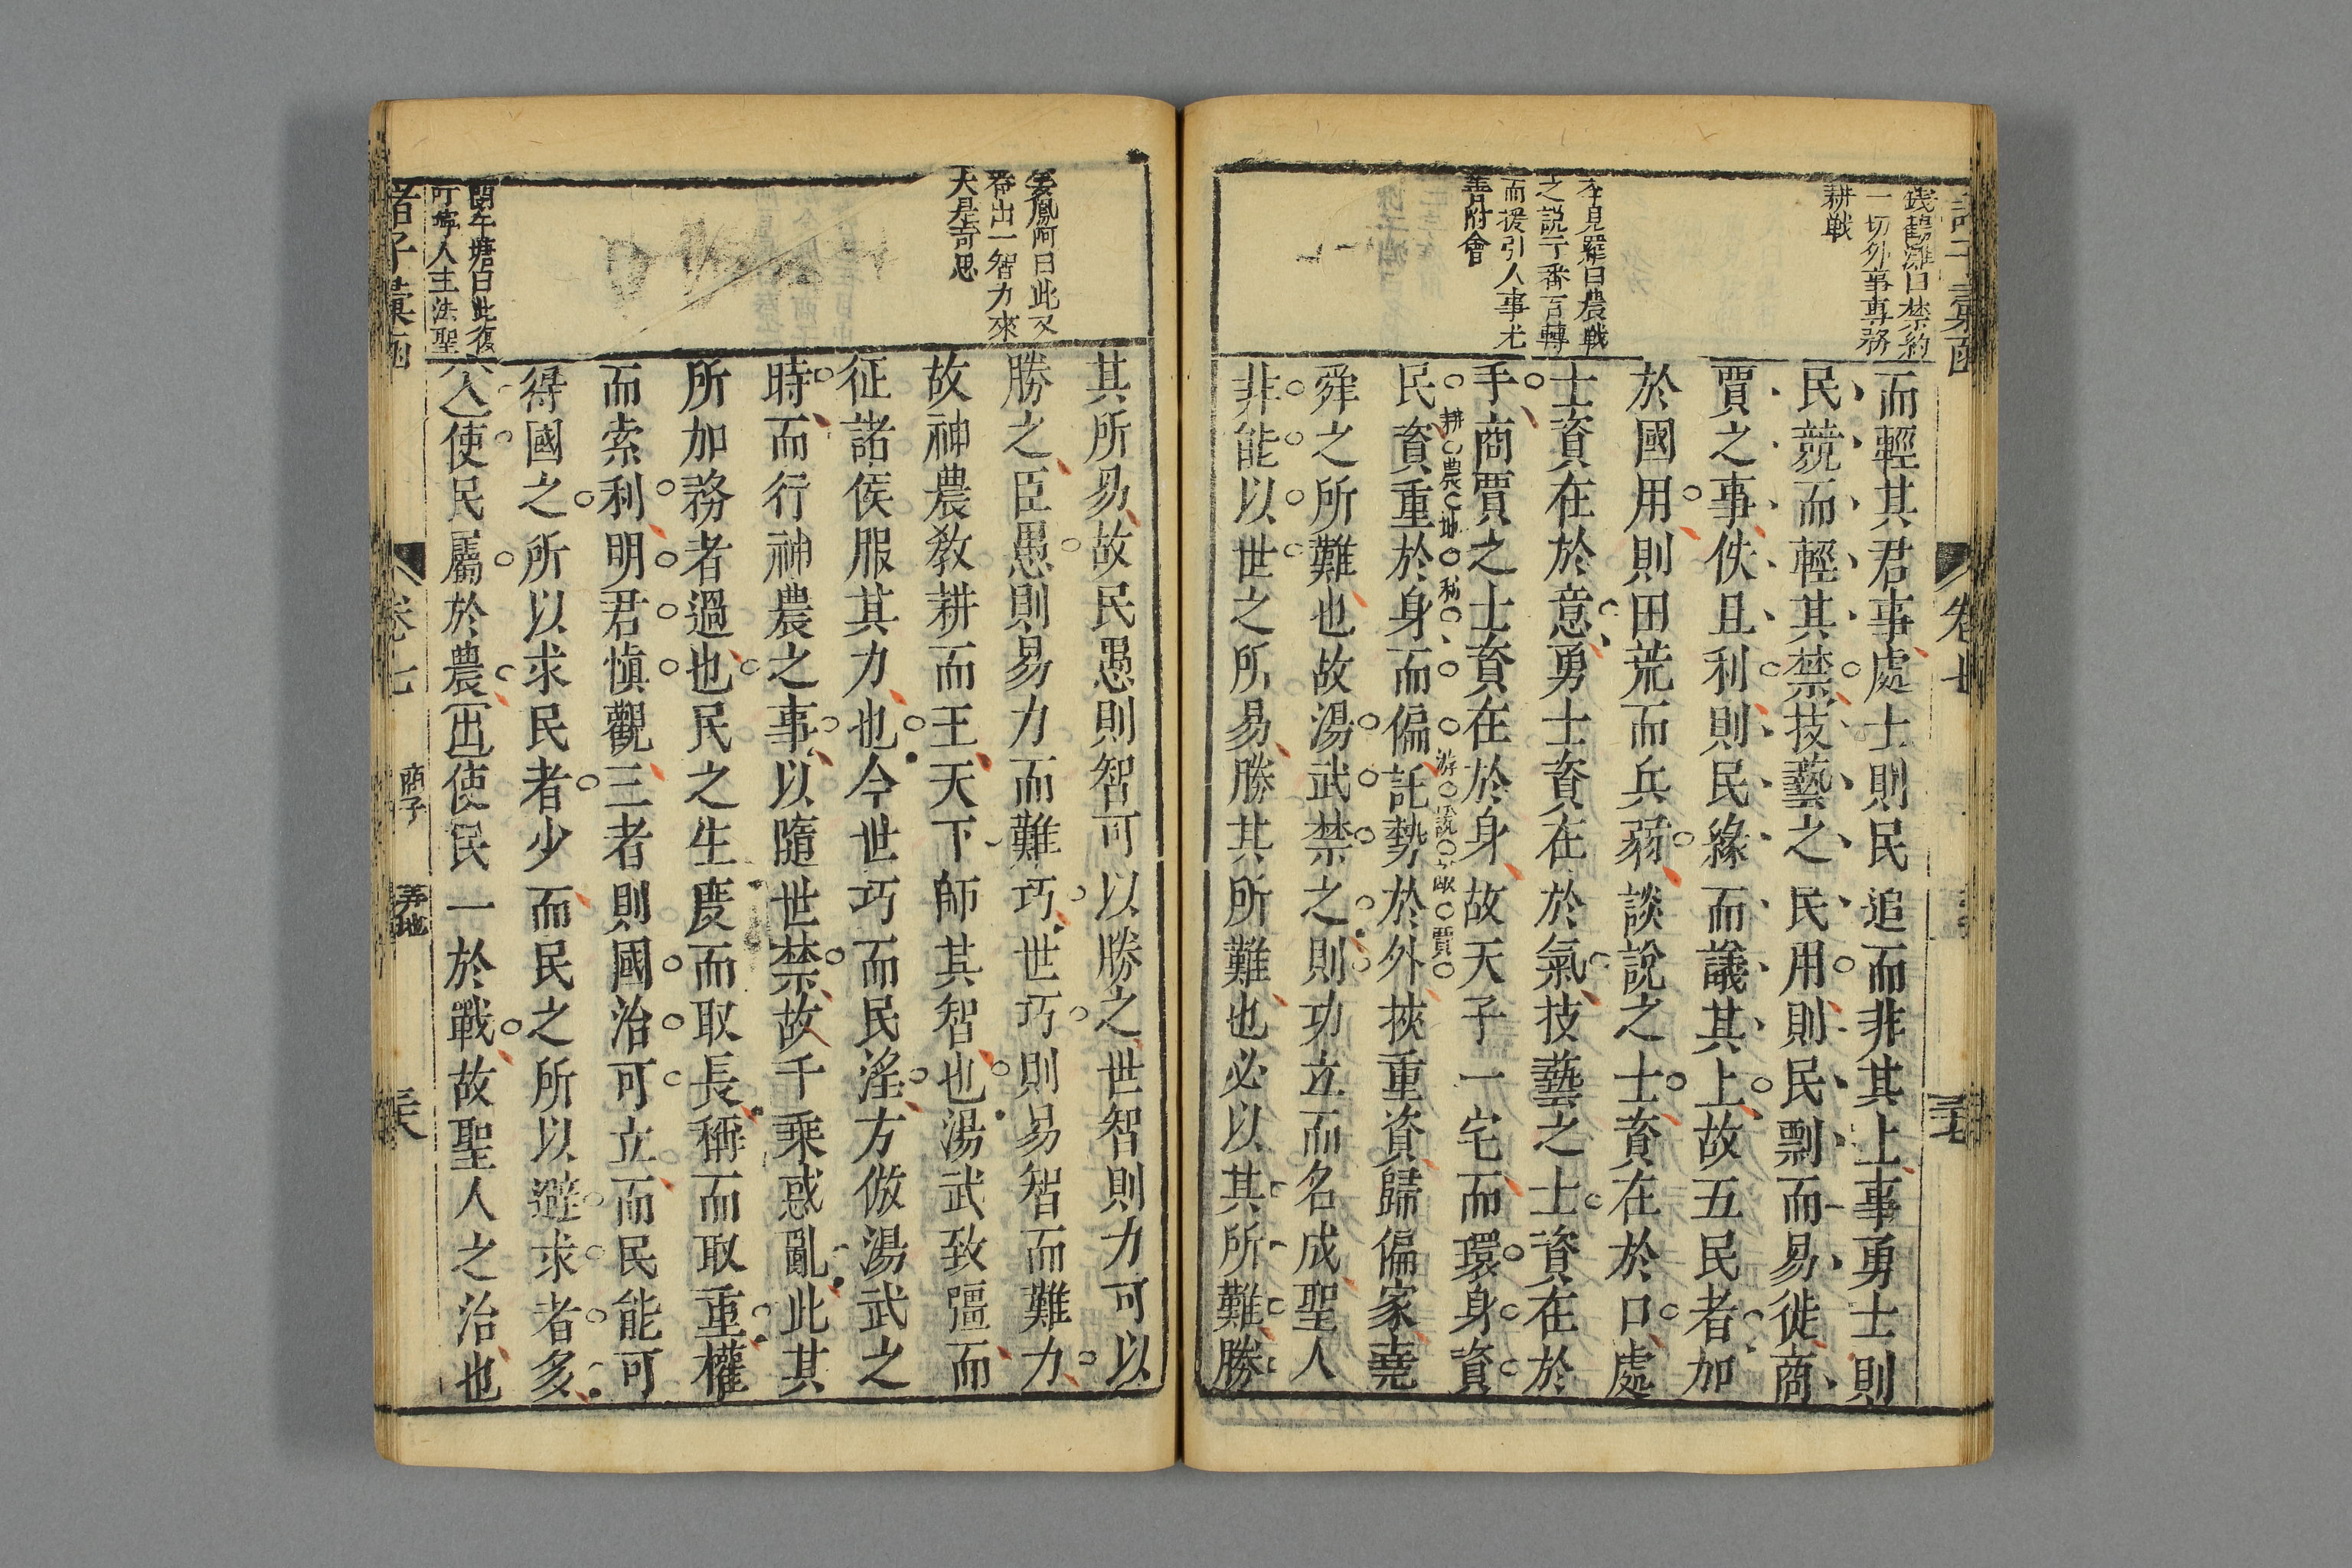 錢鶴灘曰禁約
一切外事專務
耕戰
李見羅曰農戰
之説千番百轉
而援引人事尤
善附會
而輕其君事處士則民追而非其上事勇士則
民競而輕其禁技藝之民用則民剽而易徙商
賈之事佚且利則民緣而議其上故五民者加
於國用則田荒而兵弱談說之士資在於口處
士資在於意勇士資在於氣技藝之士資在於
手商賈之士資在於身故天子一宅而環身資
民資重於身而偏託勢於外挾重資歸偏家堯
舜之所難也故湯武禁之則功立而名成聖人
非能以世之所易勝其所難也必以其所難勝
卷七
三十七
姜鳳阿曰此又
卷出一智力來
大是奇思
閔午塘曰此復
叮嚀人主法聖
其所易故民愚則智可以勝之世智則力可以
勝之臣愚則易力而難巧世巧則易智而難力
故神農敎耕而王天下師其智也湯武致彊而
征諸侯服其力也今世巧而民淫方倣湯武之
時而行神農之事以隨世禁故千乘惑亂此其
所加務者過也民之生度而取長稱而取重權
而索利明君愼觀三者則國治可立而民能可
得國之所以求民者少而民之所以避求者多
入使民屬於農出使民一於戰故聖人之治也
諸子彙函
卷七
商子
筭地
三十八